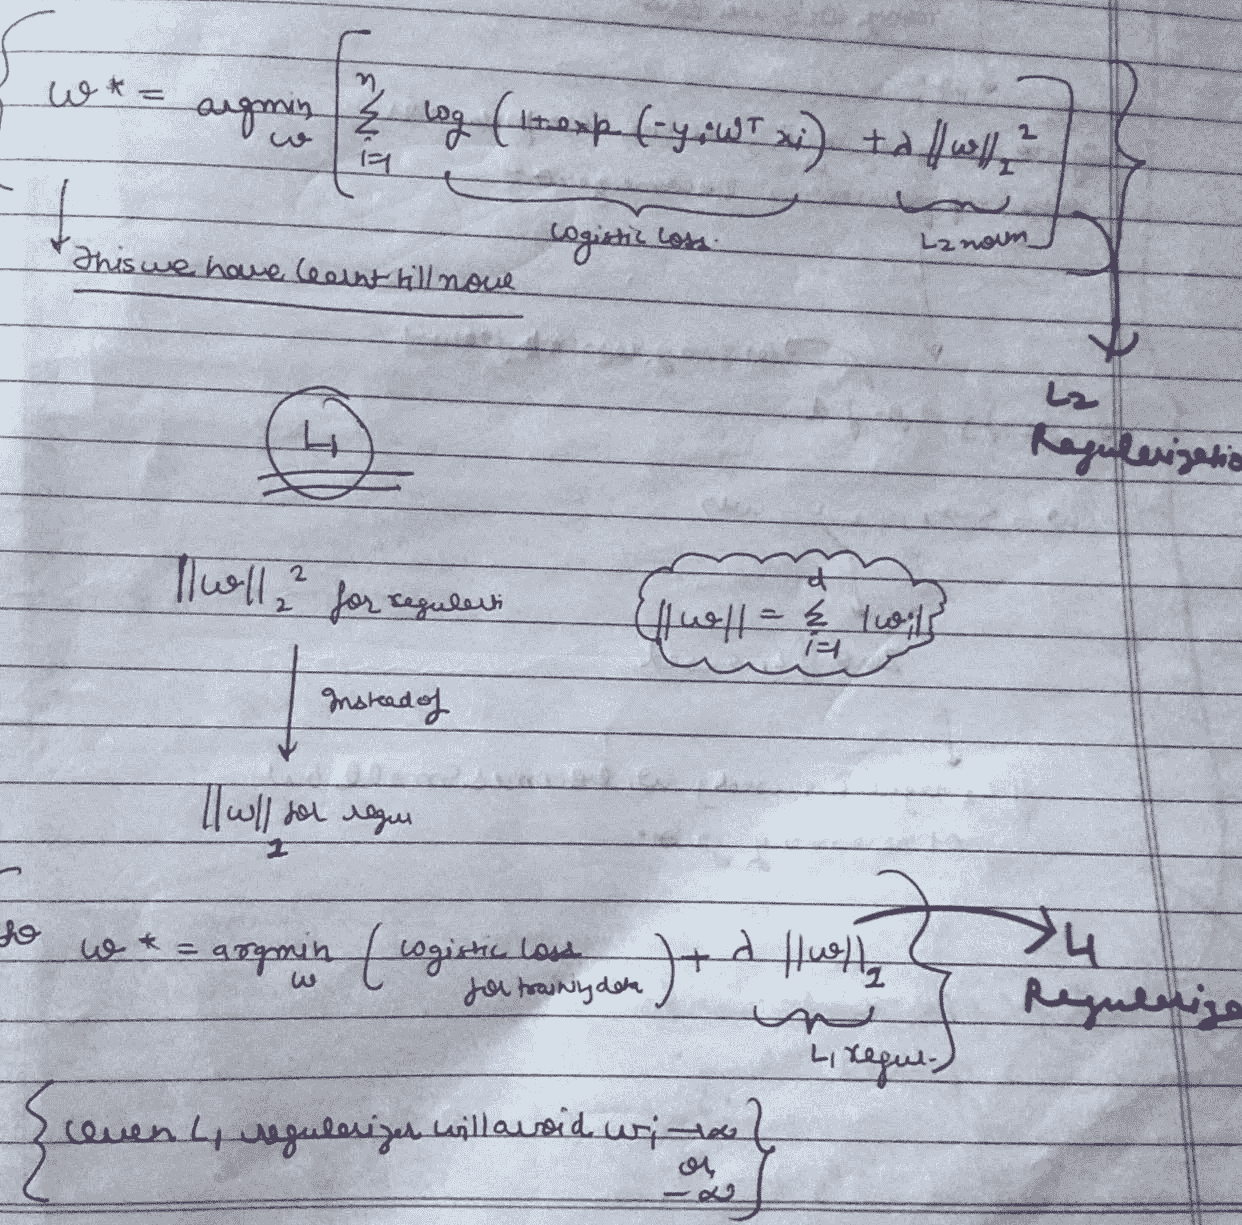 w* = argmin w [ n Σ i=1 log (1+exp (-yi wT xi) + λ ||w||2 2 ]
logistic loss.
L2 norm
This we have learnt till now
L2
Regulerizatio
L1
||w||2 2 for regulari
||w|| = d Σ i=1 |wi|
Instead of
||w||1 for regu
So w* = argmin w ( logistic loss for training data ) + λ ||w||1
L1
Regulerize
L1 regul.
{ even L1 regulerizer will avoid wi → ∞
or
- ∞ }